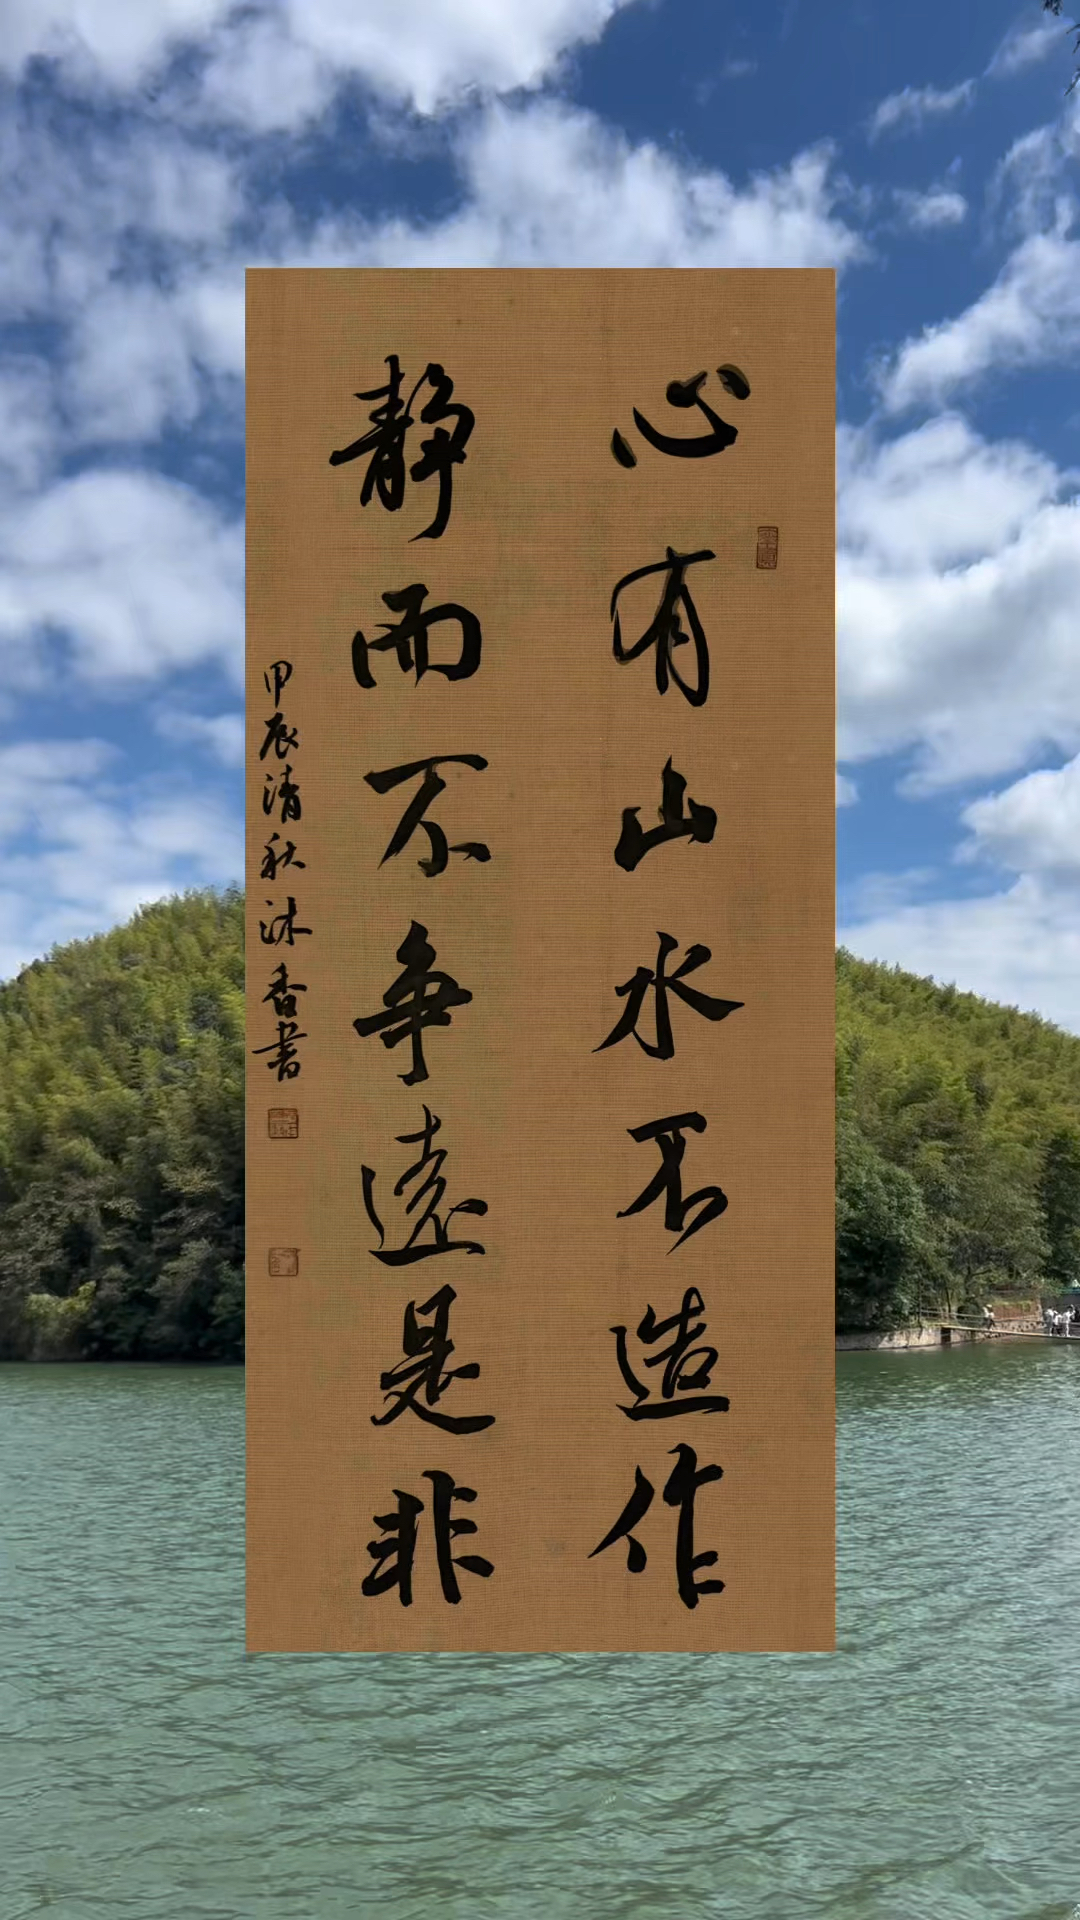 心有山水不造作
静而不争遠是非
甲辰清秋沐香書